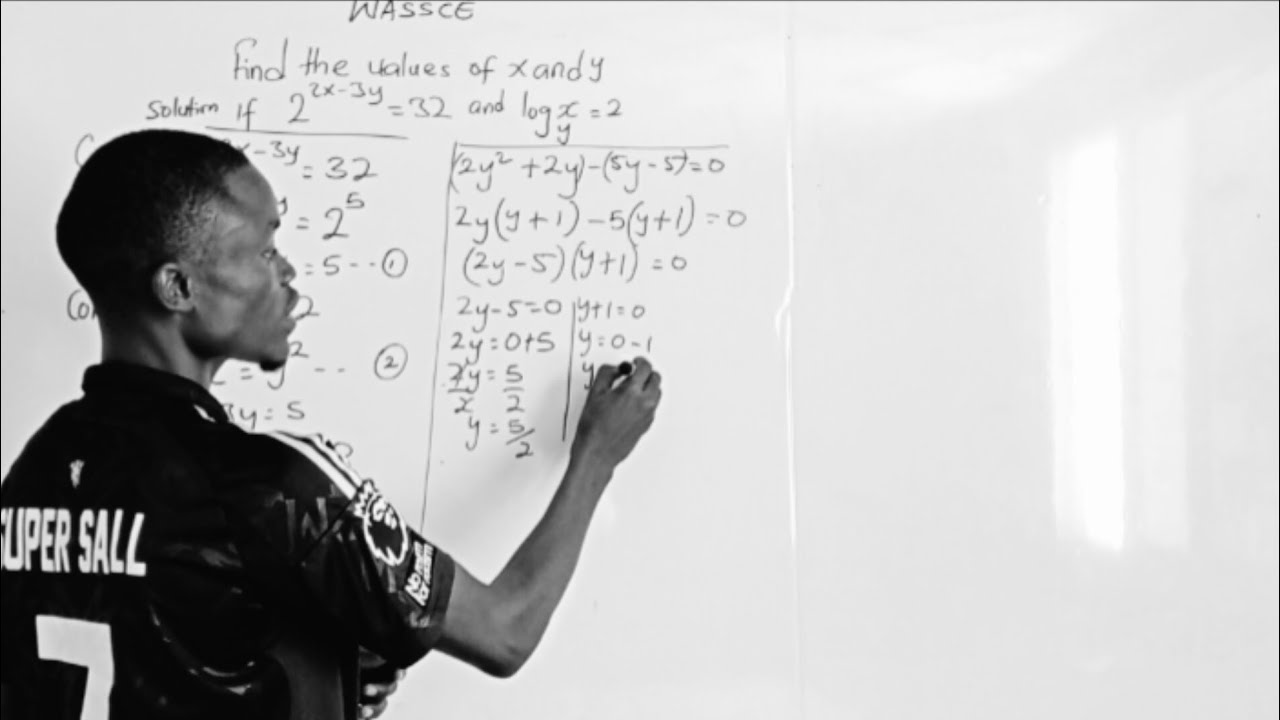 WASSCE
Find the values of x and y
Solution If 2^{2x-3y} = 32 and log_y x = 2
x-3y = 32
= 2^5
= 5 -- ①
2
= y^2 -- ②
3y = 5
(2y² + 2y) - (5y - 5) = 0
2y(y + 1) - 5(y + 1) = 0
(2y - 5)(y + 1) = 0
2y - 5 = 0
2y = 0 + 5
2y/2 = 5/2
y = 5/2
y + 1 = 0
y = 0 - 1
y
SUPER SALL
7